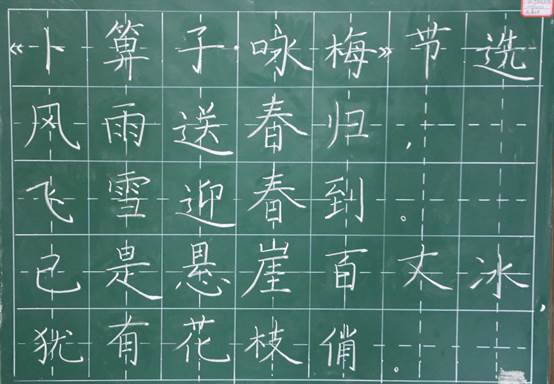 《卜算子·咏梅》节选
风雨送春归，
飞雪迎春到。
已是悬崖百丈冰，
犹有花枝俏。